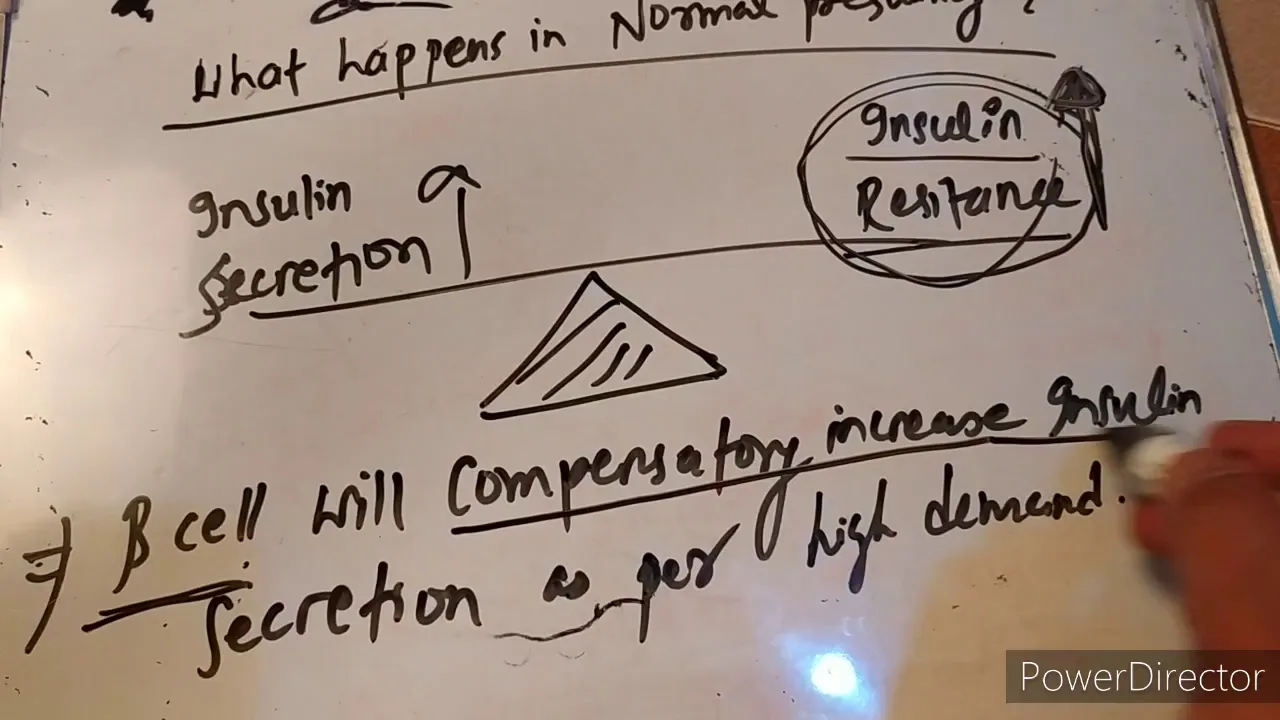 What happens in Normal pregnancy ?
Insulin
Secretion ↑
Insulin
Resitance
⇒ β cell will compensatory increase Insulin
Secretion as per high demand.
PowerDirector